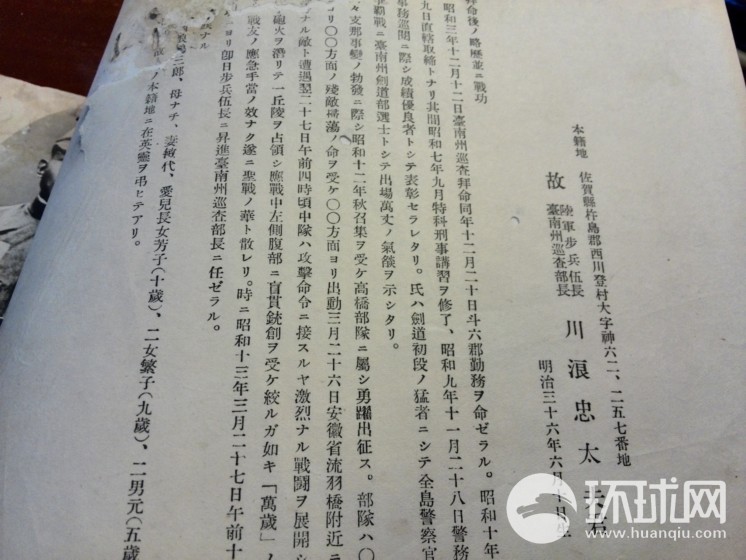 本籍地　佐賀縣杵島郡西川登村大字神六二、二五七番地
故　陸軍步兵伍長
臺南州巡査部長　川浪忠太
明治三十六年六月
拜命後ノ略歷並ニ戰功
昭和三年十二月十二日臺南州巡査拜命同年十二月二十日斗六郡勤務ヲ命ゼラル。昭和十年
九日直轄取締トナリ其間昭和七年九月特科刑事講習ヲ修了、昭和九年十一月二十八日警務
事務巡閱ニ際シ成績優良者トシテ表彰セラレタリ。氏ハ劍道初段ノ猛者ニシテ全島警察官
覇戰ニ臺南州劍道部選士トシテ出場萬丈ノ氣燄ヲ示シタリ。
々支那事變ノ勃發ニ際シ昭和十二年秋召集ヲ受ケ高橋部隊ニ屬シ勇躍出征ス。部隊ハ〇
リ〇〇方面ノ殘敵掃蕩ノ命ヲ受ケ〇〇方面ヨリ出動三月二十六日安徽省流羽橋附近ニ
ナル敵ト遭遇翌二十七日午前四時頃中隊ハ攻擊命令ニ接スルヤ激烈ナル戰鬪ヲ展開シ
砲火ヲ潛リテ一丘陵ヲ占領シ應戰中左側腹部ニ盲貫銃創ヲ受ケ絞ルガ如キ「萬歲」ノ
戰友ノ應急手當ノ效ナク遂ニ聖戰ノ華ト散レリ。時ニ昭和十三年三月二十七日午前十
ヨリ卽日步兵伍長ニ昇進臺南州巡査部長ニ任ゼラル。
ナル
三郎、母ナチ、妻敏代、愛兒長女芳子(十歲)、二女繁子(九歲)、二男元(五歲
ノ本籍地ニ在英靈ヲ弔ヒテアリ。
环球网
www.huanqiu.com